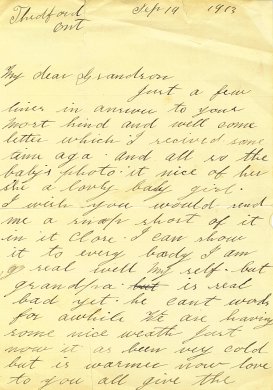 Thedford Sep 19 1913
Ont
My dear Grandson
Just a few
lines in answer to your
most kind and well come
letter which I recived some
time aga and all so the
baby's photo. it nice of her
she a lovly baby girl.
I wish you would send
me a snap short of it
in it close I can show
it to every bady I am
real well my self. but
grandpa. but is real
bad yet. he cant work
for awhile We are having
some nice weath just
now it as been vey cold
but is warmer now love
to you all give the